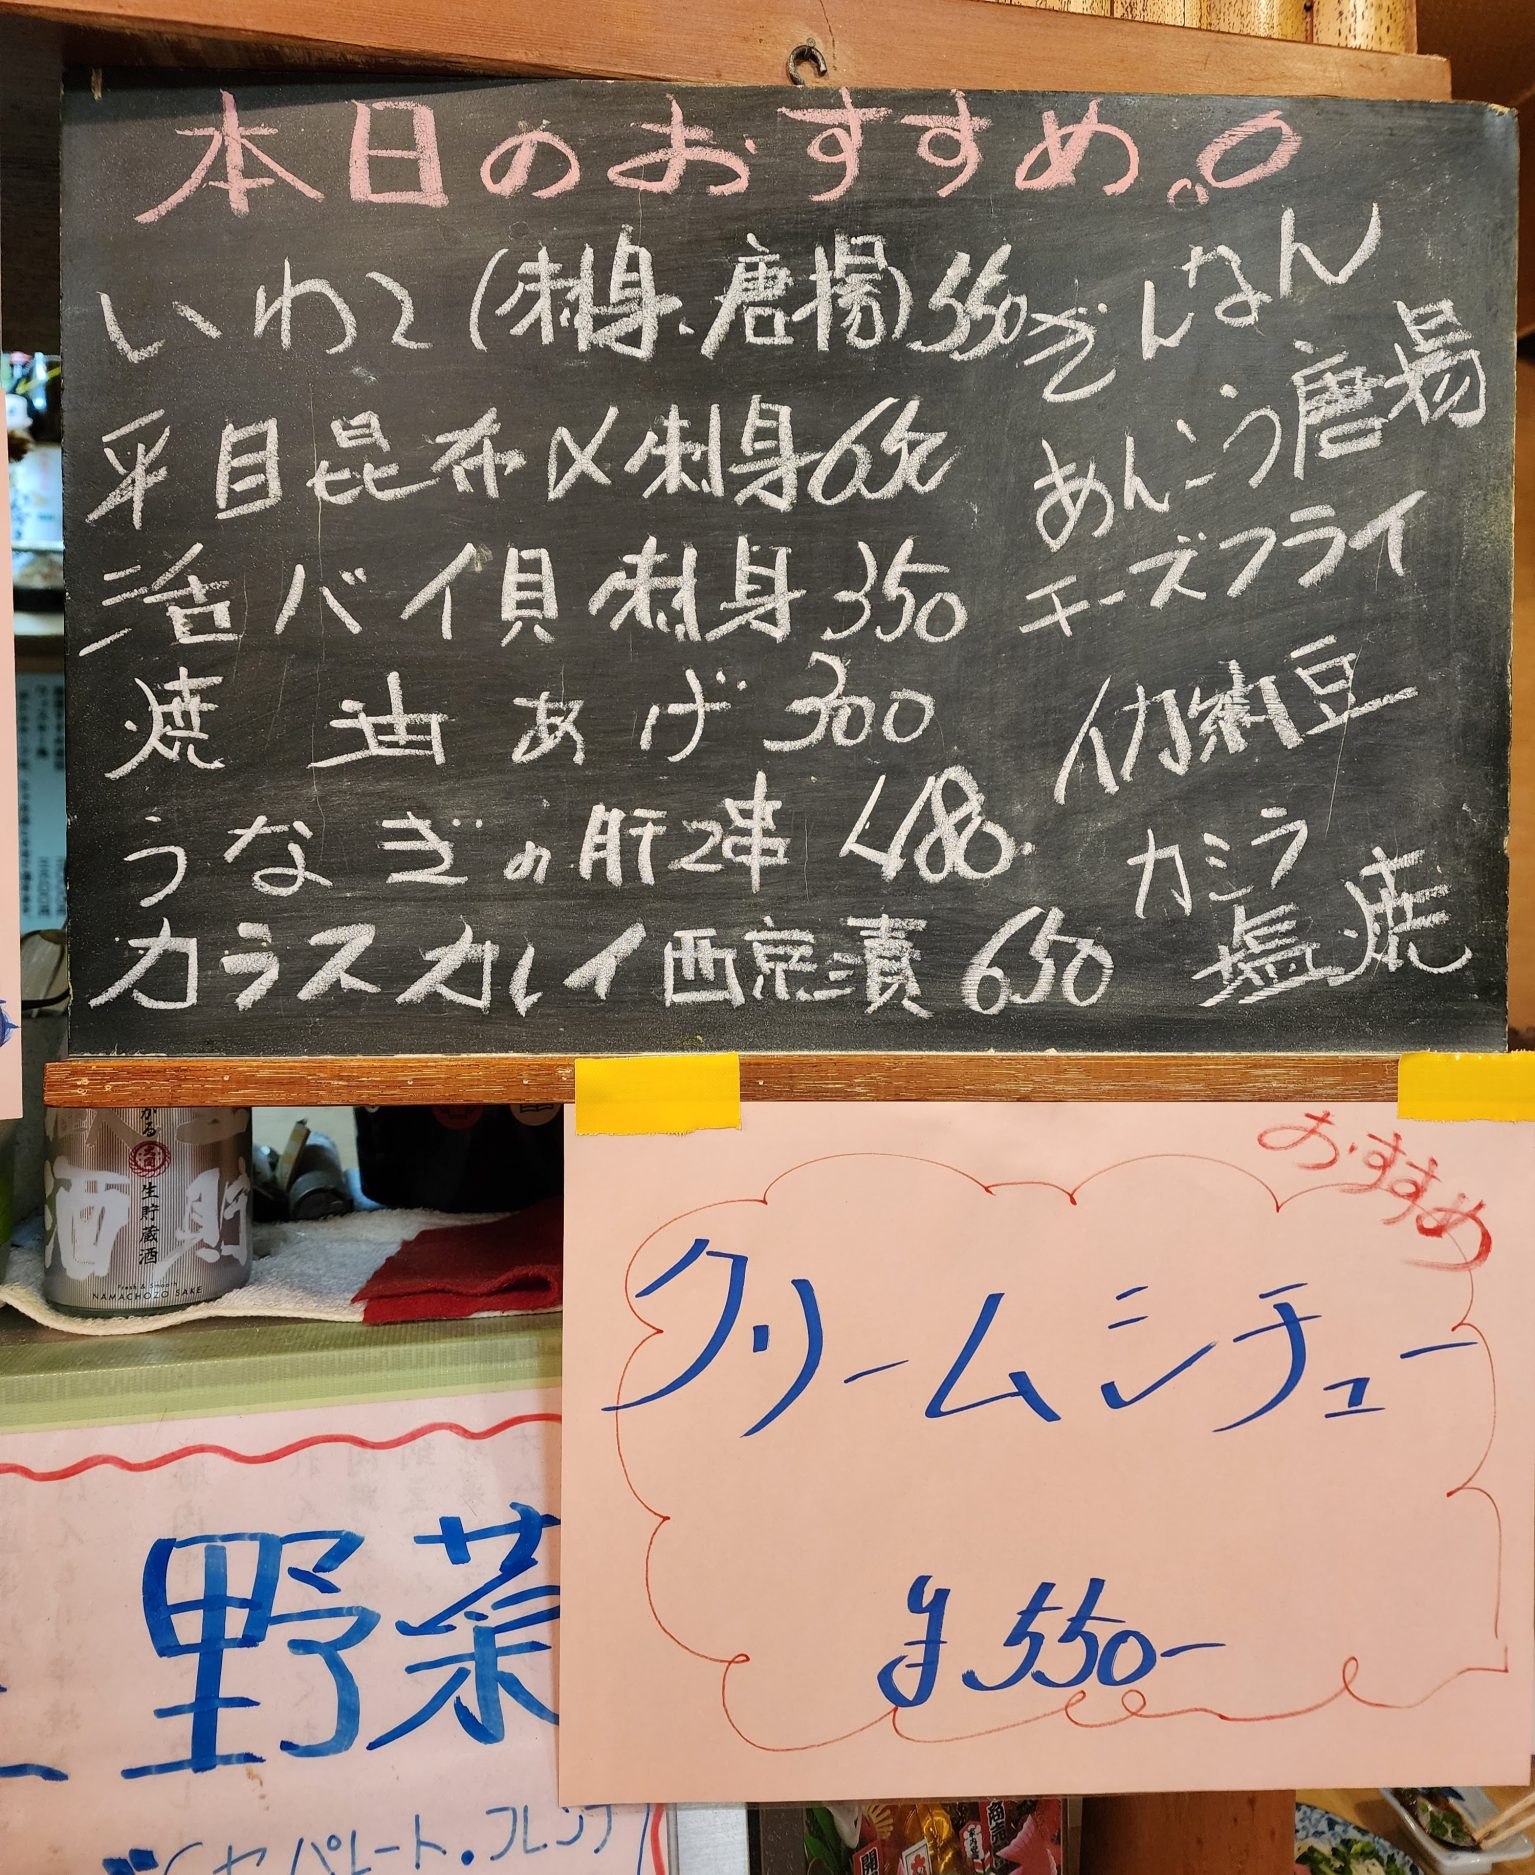 本日のおすすめ。
いわし(刺身、唐揚)550
平目昆布〆刺身650
活バイ貝刺身350
焼油あげ300
うなぎの肝2串 480.
カラスカレイ西京漬650
ぎんなん
あんこう唐揚
チーズフライ
イカ納豆
カミラ
塩焼
おすすめ
クリームシチュー
¥550-
がる
大関
生貯蔵酒
酒 貯
Fresh & Smooth
NAMACHOZO SAKE
野菜
パレート・フレンチ